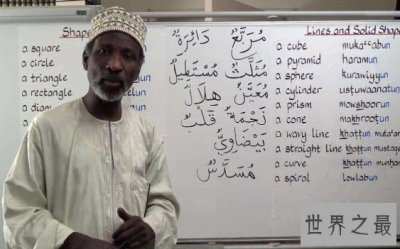 Shape
a square
a circle
a triangle
a rectangle
a diam
مُرَبَّعٌ دَائِرَةٌ
مُثَلَّثٌ مُسْتَطِيلٌ
مُعَيَّنٌ هِلَالٌ
نَجْمَةٌ قَلْبٌ
بَيْضَاوِيٌّ
مُسَدَّسٌ
Lines and Solid Shap
a cube mukaccabun
a pyramid haramun
a sphere kurawiyyun
a cylinder ustuwaanatun
a prism mowshoorun
a cone makhrootun
a wavy line khattun
a straight line khattun
a curve khattun
a spiral lowlabun
世界之最